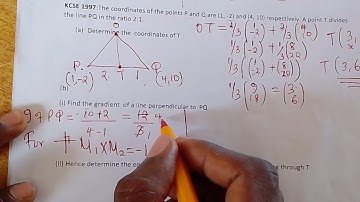 KCSE 1997: The coordinates of the points P and Q are (1, -2) and (4, 10) respectively. A point T divides
the line PQ in the ratio 2:1.
(a) Determine the coordinates of T
O
P (1,-2) 2 T 1 Q (4,10)
OT = 1/3 (1 -2) + 2/3 (4 10)
1/3 (1 -2) + 1/3 (8 20)
1/3 (9 18) = (3 6)
T (3,
T(3,6
(b)
(i) Find the gradient of a line perpendicular to PQ
g of PQ = 10+2 / 4-1 = 12/3
For M1 X M2 = -1
(ii) Hence determine the eq
ing through T